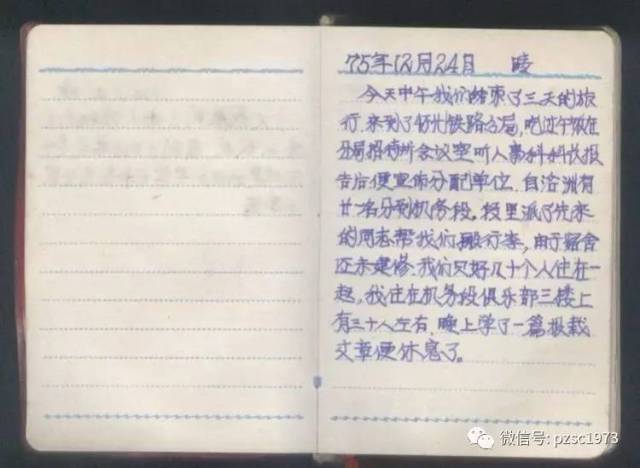 75年12月24日 晴
今天中午我们结束了三天的旅
行,来到了忻州铁路分局,吃过午饭在
分局招待所会议室听人事科科长报
告后便宣布分配单位。自洛洲有
廿名分到机务段,段里派了先来
的同志帮我们搬行李,由于宿舍
还未建修,我们只好几十个人住在一
起,我住在机务段俱乐部三楼上
有三十人左右。晚上学了一篇报载
文章便休息了。
微信号: pzsc1973